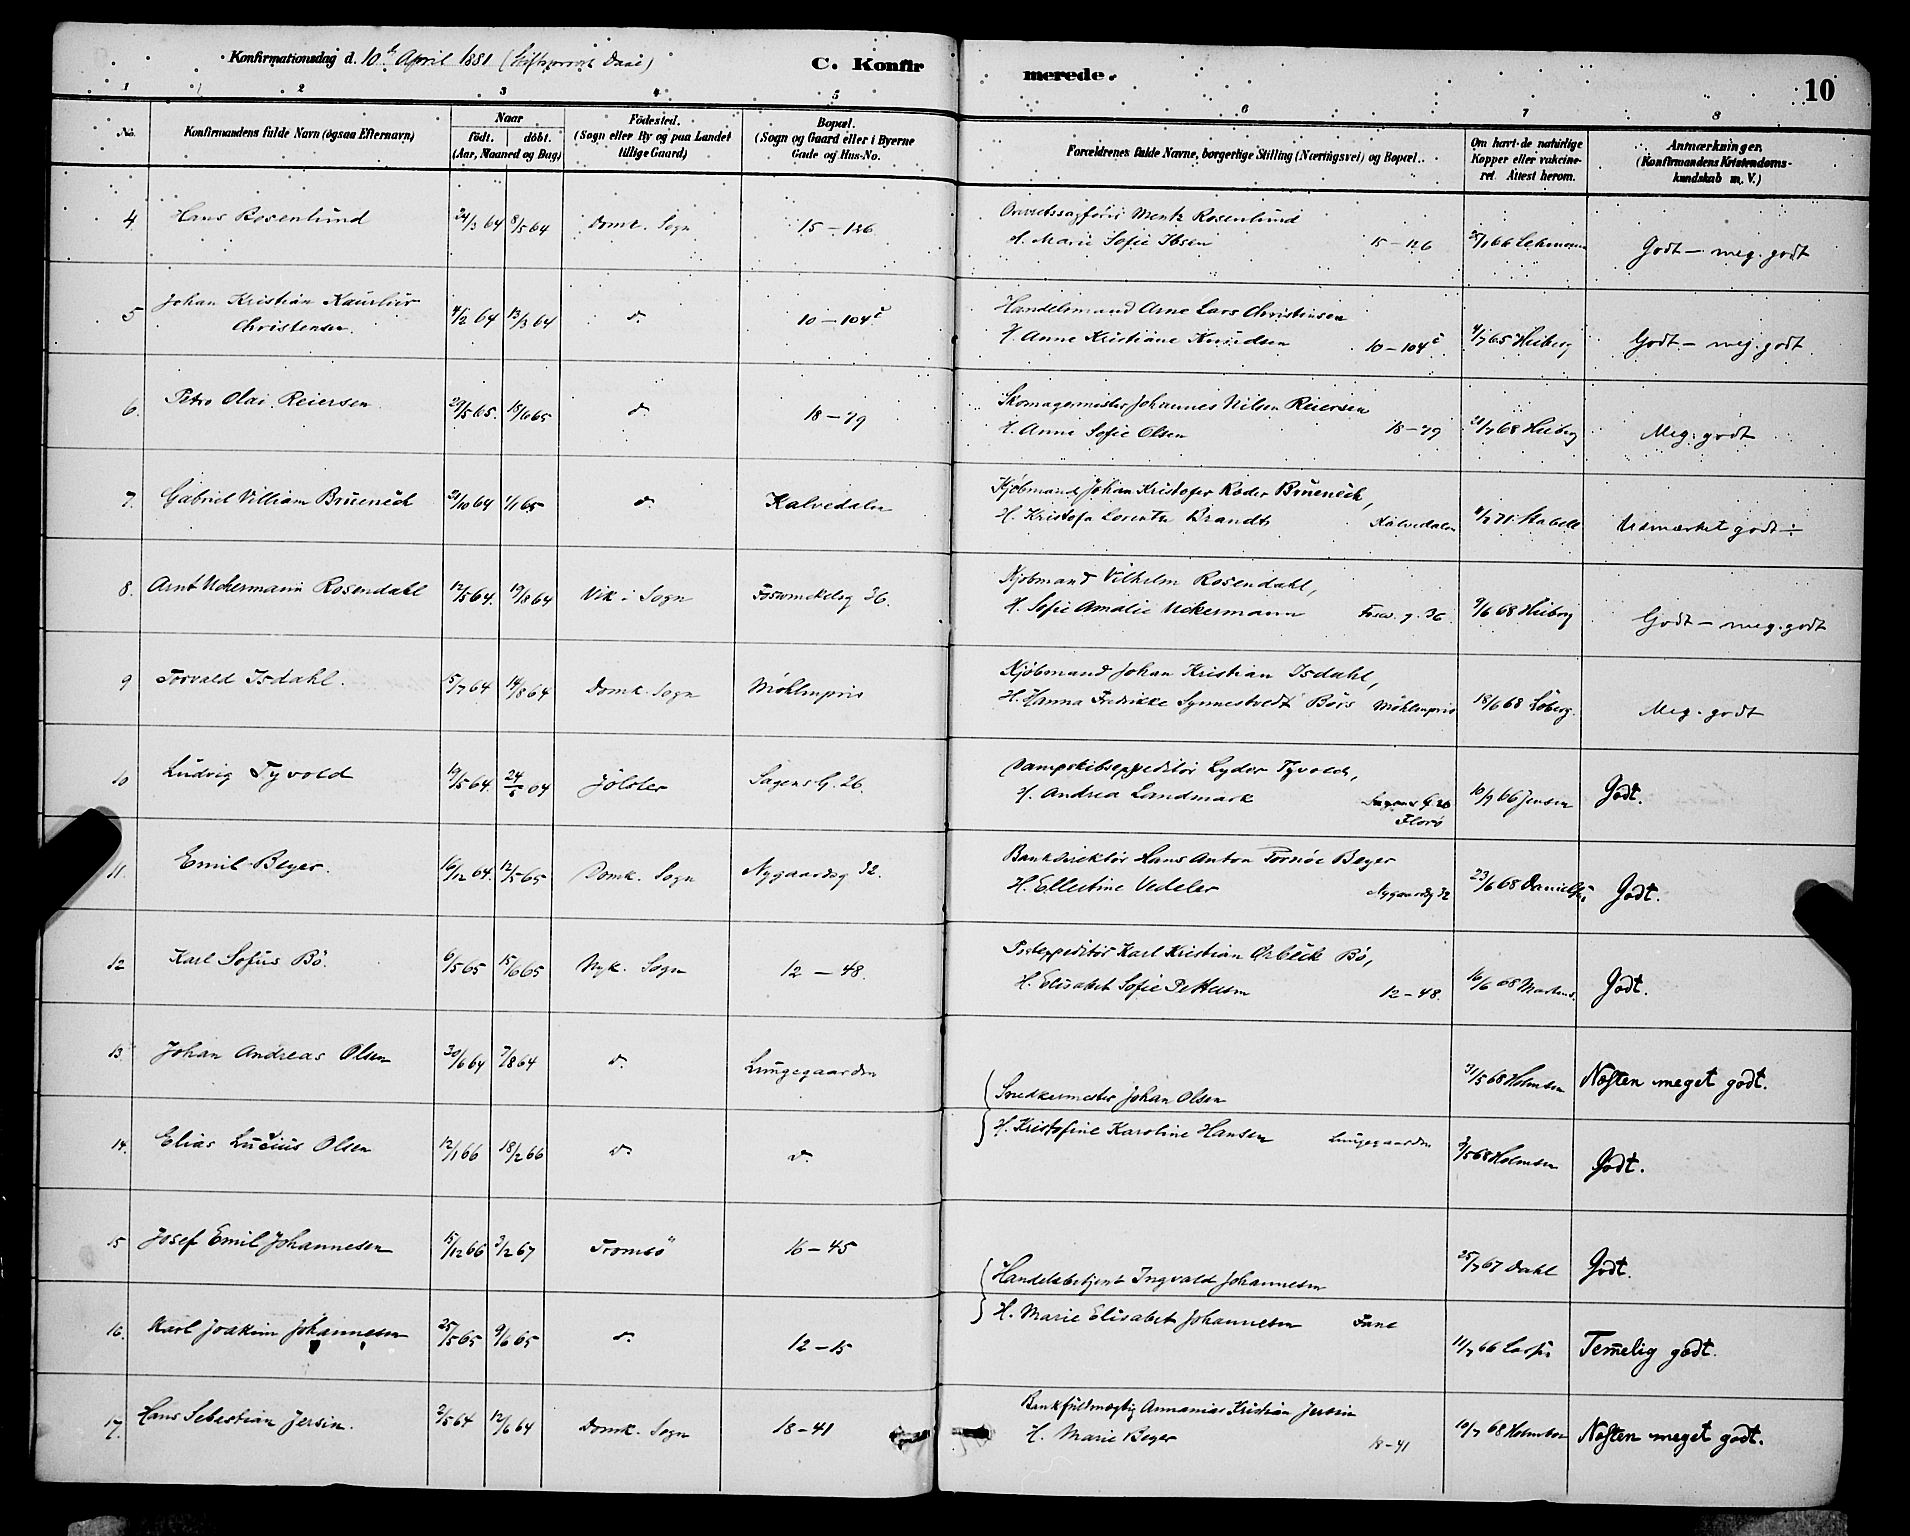 Konfirmationsdag d. 10de April 1881 (Stiftsprovst Daae) C. Konfirmerede. 10
1 2 3 4 5 6 7 8
No. Konfirmandens fulde Navn (ogsaa Efternavn) Naar födt. döbt. (Aar, Maaned og Dag) Födested. (Sogn eller By og paa Landet tillige Gaard) Bopæl. (Sogn og Gaard eller i Byerne Gade og Hus-No. Forældrenes fulde Navne, borgerlige Stilling (Næringsvei) og Bopæl. Om havt de naturlige Kopper eller vakcineret. Attest herom. Anmærkninger. (Konfirmandens Kristendomskundskab m. V.)
4 Hans Rosenlund 24/3 64 8/5 64 Domk. Sogn 15 – 126 Overretssagfører Mentz Rosenlund
H. Marie Sofie Ibsen 15 – 126 /66 Lehmann Godt – meg. godt
5 Johan Kristian
Christensen 4/2 64 13/3 64 do 10 – 104c Handelsmand Arne Lars Christensen
H. Anne Kristiane Knudsen 10 – 104c 4/7 65 Heiberg Godt – meg. godt
6. Petro Olai Reiersen 29/5 65. 18/6 65 do 18 – 79 Skomagermester Johannes Nilsen Reiersen
H. Anne Sofie Olsen 18 – 79 21/7 68 Heiberg Meg. godt
7. Gabriel Villiam Bruenech 21/10 64 1/1 65 do Kalvedalen Kjöbmand Johan Kristofer Röder Bruenech,
H. Kristofa Lorentze Brandt Kalvedalen /7 71. Stabell Udmærket godt ÷
8. Arnt Uckermann Rosendahl 12/5 64. 19/8 64 Vik i Sogn Fosvinckelsg 36. Kjöbmand Vilhelm Rosendahl,
H. Sofie Amalie Uckermann Fosw. g. 36 9/6 68 Heiberg Godt – meg. godt
9 Torvald Isdahl. 5/7 64 14/8 64 Domk. Sogn Möhlenpris Kjöbmand Johan Kristian Isdahl,
H. Hanna Fredrikke Synnestvedt Börs Möhlenpris 18/6 68 Löberg. Meg. godt
10 Ludvig Tyvold 19/5 64. 24/ 64 Jölster Sagens G. 26. Dampskibsexpeditör Lyder Tyvold,
H. Andrea Landmark Sagens G. 26
Florö 10/9 66 Jensen Godt.
11 Emil Beyer. 16/12 64. 12/5 65 Domk. Sogn Nygaardsg 32. Bankdirektör Hans Anton Tornöe Beyer
H. Ellertine Vedeler Nygaardsg 32 23/6 68 Danielss. Godt.
12 Karl Sofus Bö. 6/5 65 15/6 65 Nyk. Sogn 12 – 48. Postexpeditör Karl Kristian Örbeck Bö,
H. Elisabet Sofie Pettersen 12 – 48. 16/6 68 Martens. Godt.
13. Johan Andreas Olsen 30/6 64 7/8 64 do Lungegaarden Snedkermester Johan Olsen 31/5 68 Holmsen Næsten meget godt.
14. Elias Lucius Olsen 12/1 66 18/2 66 do do H. Kristofine Karoline Hansen Lungegaarden /5 68 Holmsen Godt.
15 Josef Emil Johannesen 15/12 66 3/2 67 Tromsö 16 – 45 Handelsbetjent Ingvald Johannesen 25/7 67 Dahl Godt.
16. Karl Joakim Johannesen 25/5 65 9/6 65 do 12 – 15 H. Marie Elisabet Johannesen Fane 11/7 66 Temmelig godt.
17. Hans Sebastian Jersin. 2/5 64 12/6 64 Domk. Sogn 18 – 41 Bankfuldmægtig Annanias Kristian Jersin
H. Marie Beyer 18 – 41 10/7 68 Holmboe Næsten meget godt.